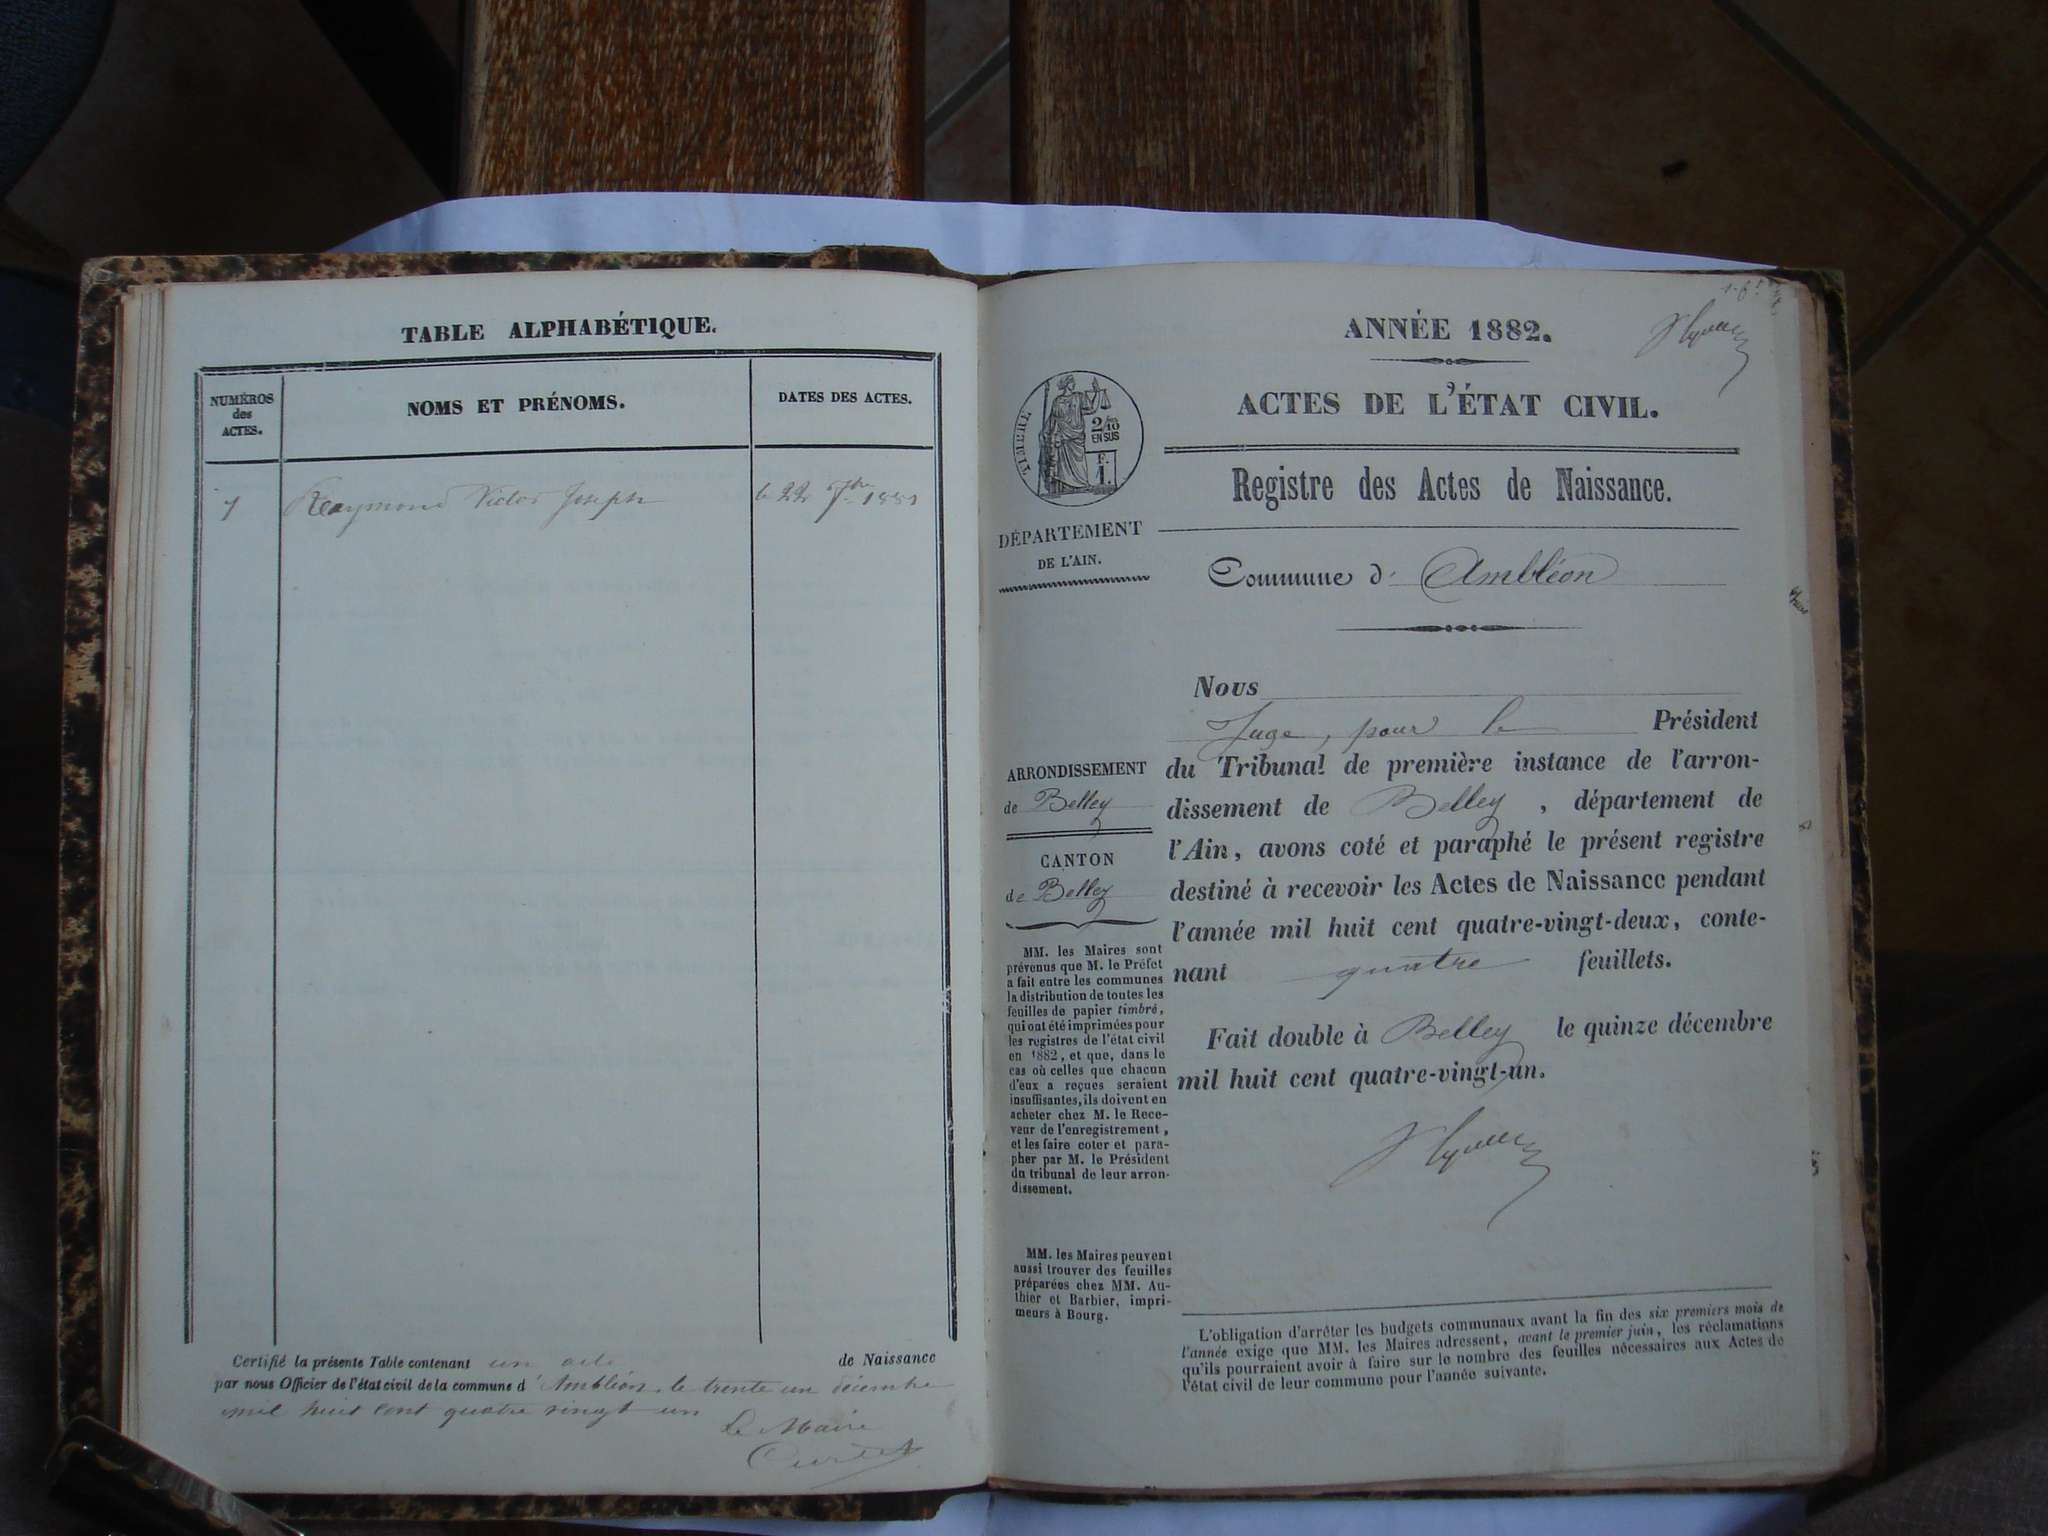 TABLE ALPHABÉTIQUE.
NUMÉROS
des
ACTES.
NOMS ET PRÉNOMS.
DATES DES ACTES.
1 Reaymond Victor Joseph le 22 7bre 1881
Certifié la présente Table contenant un acte de Naissance
par nous Officier de l'état civil de la commune d'Ambléon, le trente un décembre
mil huit cent quatre vingt un
Le Maire
ANNÉE 1882.
ACTES DE L'ÉTAT CIVIL.
TIMBRE
2/10
EN SUS
F.
1.
Registre des Actes de Naissance.
DÉPARTEMENT
DE L'AIN.
Commune d' Ambléon
Nous
Juge, pour le Président
du Tribunal de première instance de l'arron-
dissement de Belley, département de
l'Ain, avons coté et paraphé le présent registre
destiné à recevoir les Actes de Naissance pendant
l'année mil huit cent quatre-vingt-deux, conte-
nant quatre feuillets.
Fait double à Belley le quinze décembre
mil huit cent quatre-vingt-un.
ARRONDISSEMENT
de Belley
CANTON
de Belley
MM. les Maires sont
prévenus que M. le Préfet
a fait entre les communes
la distribution de toutes les
feuilles de papier timbré,
qui ont été imprimées pour
les registres de l'état civil
en 1882, et que, dans le
cas où celles que chacun
d'eux a reçues seraient
insuffisantes, ils doivent en
acheter chez M. le Rece-
veur de l'enregistrement,
et les faire coter et para-
pher par M. le Président
du tribunal de leur arron-
dissement.
MM. les Maires peuvent
aussi trouver des feuilles
préparées chez MM. Au-
thier et Barbier, impri-
meurs à Bourg.
L'obligation d'arrêter les budgets communaux avant la fin des six premiers mois de
l'année exige que MM. les Maires adressent, avant le premier juin, les réclamations
qu'ils pourraient avoir à faire sur le nombre des feuilles nécessaires aux Actes de
l'état civil de leur commune pour l'année suivante.